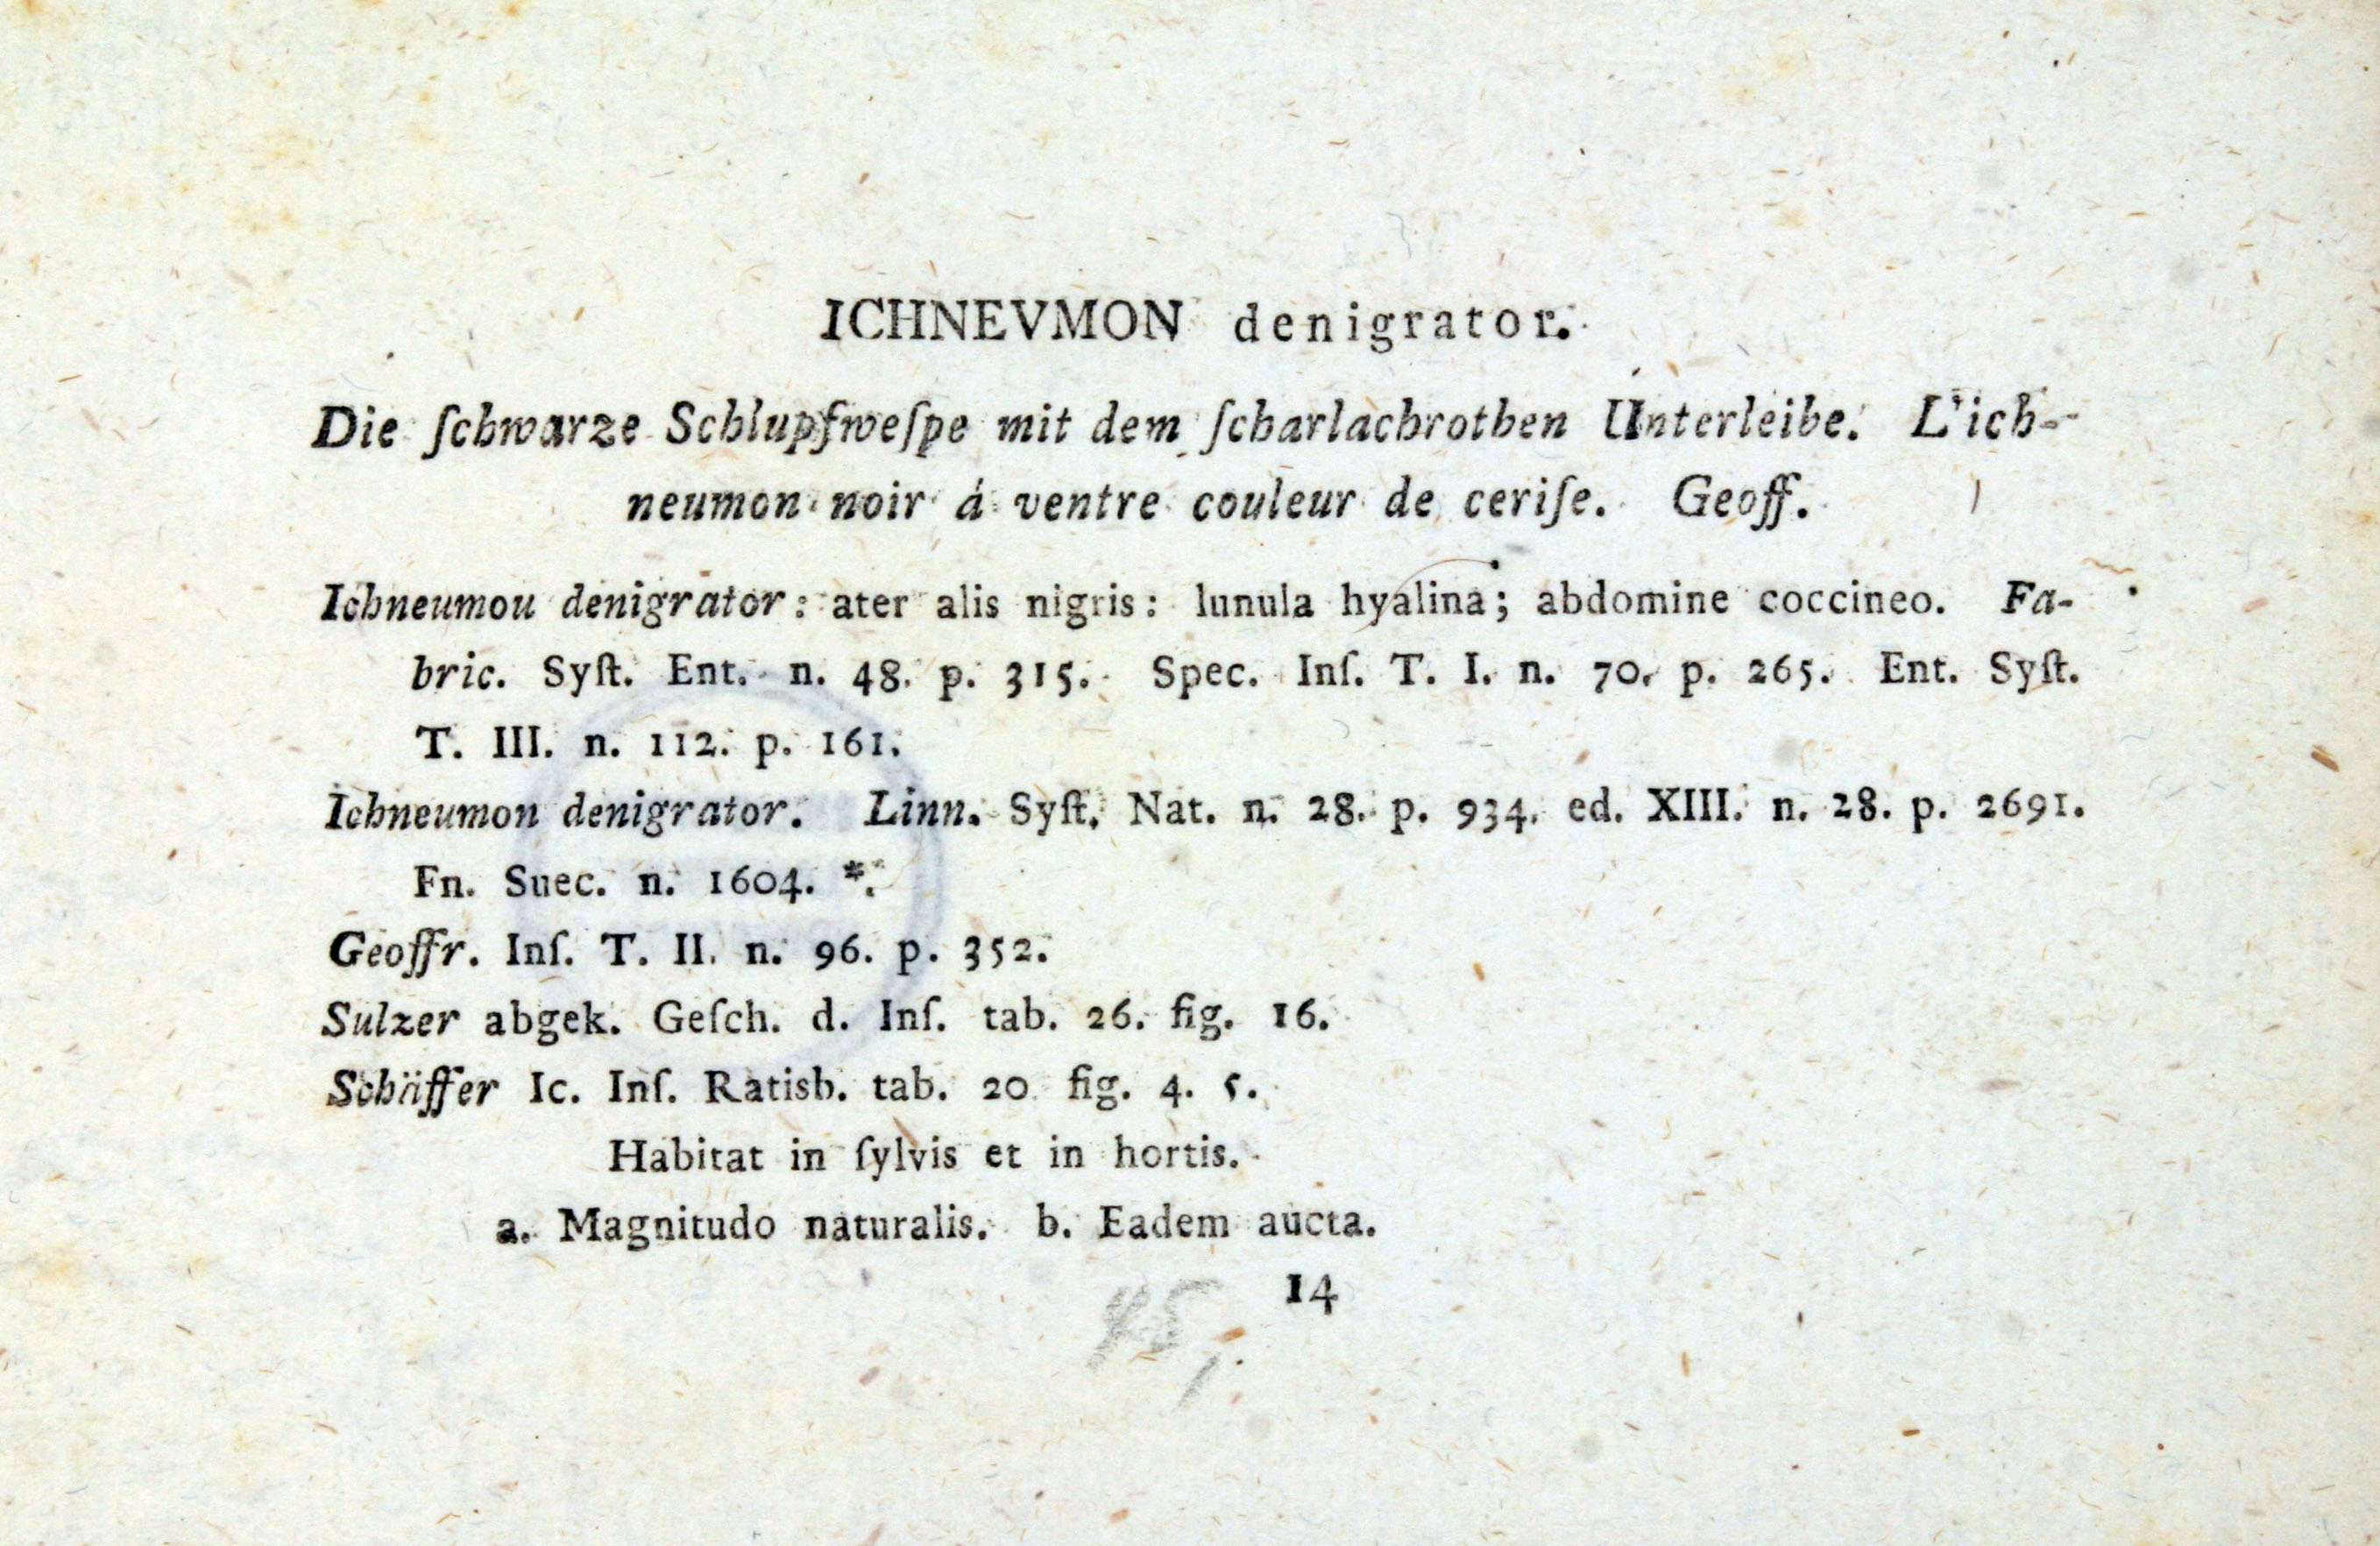 ICHNEVMON denigrator.
Die ſchwarze Schlupfweſpe mit dem ſcharlachrothen Unterleibe. L'ich-
neumon noir á ventre couleur de ceriſe. Geoff.
Ichneumou denigrator: ater alis nigris: lunula hyalina; abdomine coccineo. Fa-
bric. Syſt. Ent. n. 48. p. 315. Spec. Inſ. T. I. n. 70. p. 265. Ent. Syſt.
T. III. n. 112. p. 161.
Ichneumon denigrator. Linn. Syſt. Nat. n. 28. p. 934. ed. XIII. n. 28. p. 2691.
Fn. Suec. n. 1604. *.
Geoffr. Inſ. T. II. n. 96. p. 352.
Sulzer abgek. Geſch. d. Inſ. tab. 26. fig. 16.
Schäffer Ic. Inſ. Ratisb. tab. 20 fig. 4. 5.
Habitat in ſylvis et in hortis.
a. Magnitudo naturalis. b. Eadem aucta.
14